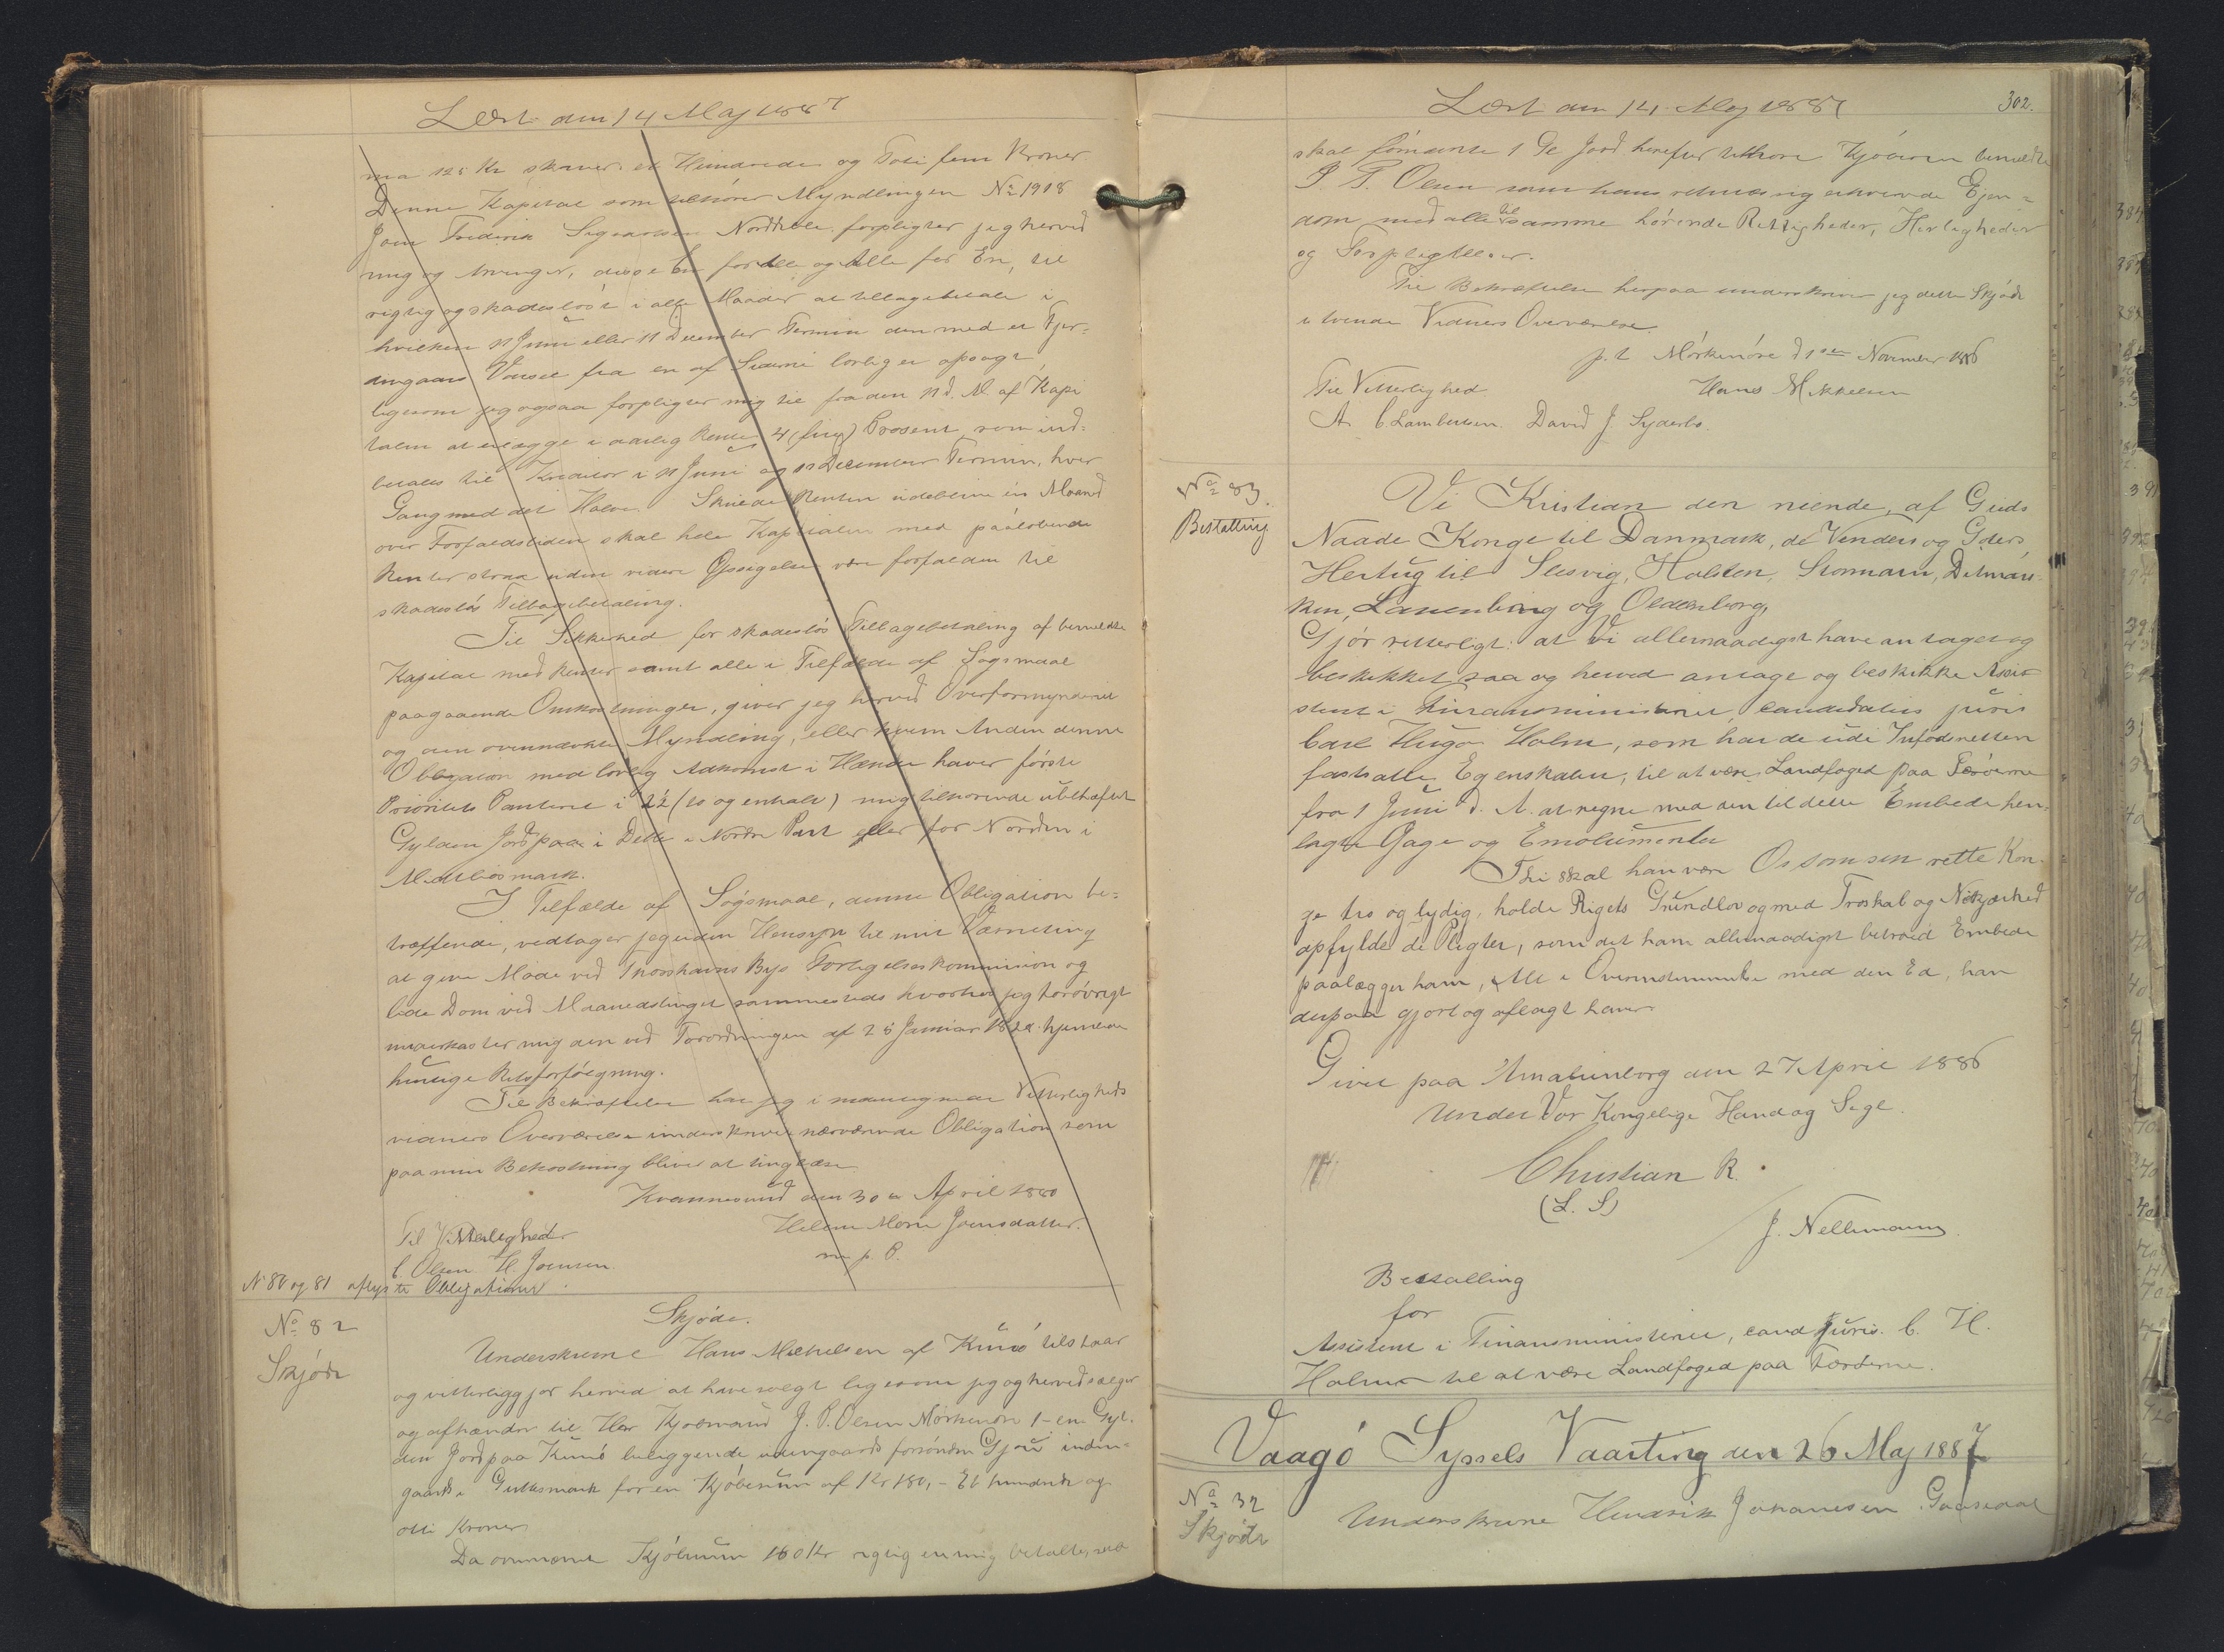 Læst den 14 Maj 1887
ma 125 Kr skriver et Hundrede og Toti fem Kroner.
Denne Kapital som tilhører Myndlingen No 1908
Joen Frederik Nordhole forpligter jeg herved
mig og Arvinger, disse En for Alle og Alle for En, til
rigtig og skadesløst i alle Maader at tilbagebetale i
hvilken 11 Juni eller 11 December Termin den med et Fjer-
dingaars Varsel fra en af Siderne lovlig er opsagt
ligesom jeg ogsaa forpligter mig til fra den 11 d. M. af Kapi
talen at erlægge i aarlig Rente 4 (fire) Procent, som ind-
betales til Kreditor i 11 Juni og 11 December Termin, hver
Gang med det Halve. Skulde Renten udeblive én Maaned
over Forfaldstiden skal hele Kapitalen med paaløbende
Renter strax uden videre Opsigelse være forfalden til
skadesløs Tilbagebetaling.
Til Sikkerhed for skadesløs Tilbagebetaling af bemeldte
Kapital med Renter samt alle i Tilfælde af Søgsmaal
paagaaende Omkostninger, giver jeg herved Overformynderiet
og den ovennævnte Myndling, eller hvem Anden denne
Obligation med lovlig Adkomst i Hænde haver første
Prioritets Panteret i 2½ (to og en halv) mig tilhørende ubehæftet
Gylden Jord paa i Nordre Part eller for Norden i
Midtbøsmark.
I Tilfælde af Søgsmaal, denne Obligation be-
træffende, vedtager jeg uden Hensyn til mit Værneting
at give Møde ved Thorshavns Bys Forligelseskommission og
lide Dom ved Maanedstinget sammesteds hvorhos jeg forøvrigt
underkaster mig den ved Forordningen af 25 Januar 1828 hjemlede
hurtige Retsforfølgning.
Til Bekræftelse har jeg i Vitterligheds
vidners Overværelse underskrevet nærværende Obligation som
paa min Bekostning bliver at tinglæse
Kvannesund den 30te April 1880
Til Vitterlighed Helene Marie Joensdatter.
C. Olsen H. Joensen. m. p. P.
No 80 og 81 aflyste Obligationer.
No 82
Skjøde
Skjøde.
Underskrevne Hans Mikkelsen af Kunø tilstaar
og vitterliggjør herved at have solgt ligesom jeg og herved sælger
og afhænder til Hr Kjøbmand J. P. Olsen Mørkenøre 1 - en Gyl-
den Jord paa Kunø beliggende udengaards forsønden Gjov inden-
gaards i Gutesmark for en Kjøbesum af Kr 180,- Et hundrede og
otti Kroner
Da ovennævnte Kjøbesum 180 Kr rigtig er mig betalte, saa
Læst den 14 Maj 1887
302.
skal fornævnte 1 Gl Jord herefter tilhøre Kjøberen bemeldte
J. P. Olsen som hans retmæssig erhvervede Ejen-
dom med alle til samme hørende Rettigheder, Herligheder
og Forpligtelser.
Til Bekræftelse herpaa underskriver jeg dette Skjøde
i tvende Vidners Overværelse.
p. t. Mørkenøre d 1ste November 1886
Til Vitterlighed Hans Mikkelsen
A. C. Lambertsen. David J. Syderbø.
No 83.
Bestalling
Vi Kristian den niende, af Guds
Naade Konge til Danmark, de Venders og Goters
Hertug til Slesvig, Holsten, Stormarn, Ditmars-
ken, Lauenborg og Oldenborg,
Gjør vitterligt: at Vi allernaadigst have antaget og
beskikket saa og herved antage og beskikke Assi-
stent i Finansministeriet, candidatus juris
Carl Hugo Holm, som har de udi Infødsretten
fastsatte Egenskaber, til at være Landfoged paa Færøerne
fra 1 Juni d. A. at regne med den til dette Embede hen-
lagte Gage og Emolumenter
Thi skal han være Os som sin rette Kon-
ge tro og lydig, holde Rigets Grundlov og med Troskab og Nidkjærhed
opfylde de Pligter, som det ham allernaadigst betroed Embede
paalægger ham, Alt i Overensstemmelse med den Ed, han
derpaa gjort og aflagt haver
Givet paa Amalienborg den 27 April 1886
Under Vor Kongelige Haand og Segl.
Christian R.
(L. S)
J. Nellemann
Bestalling
for
Assistent i Finansministeriet, cand juris. C. H.
Holm til at være Landfoged paa Færøerne.
Vaagø Syssels Vaarting den 26 Maj 1887
No 32
Skjøde
Underskrevne Hendrik Johanesen Gaasedal